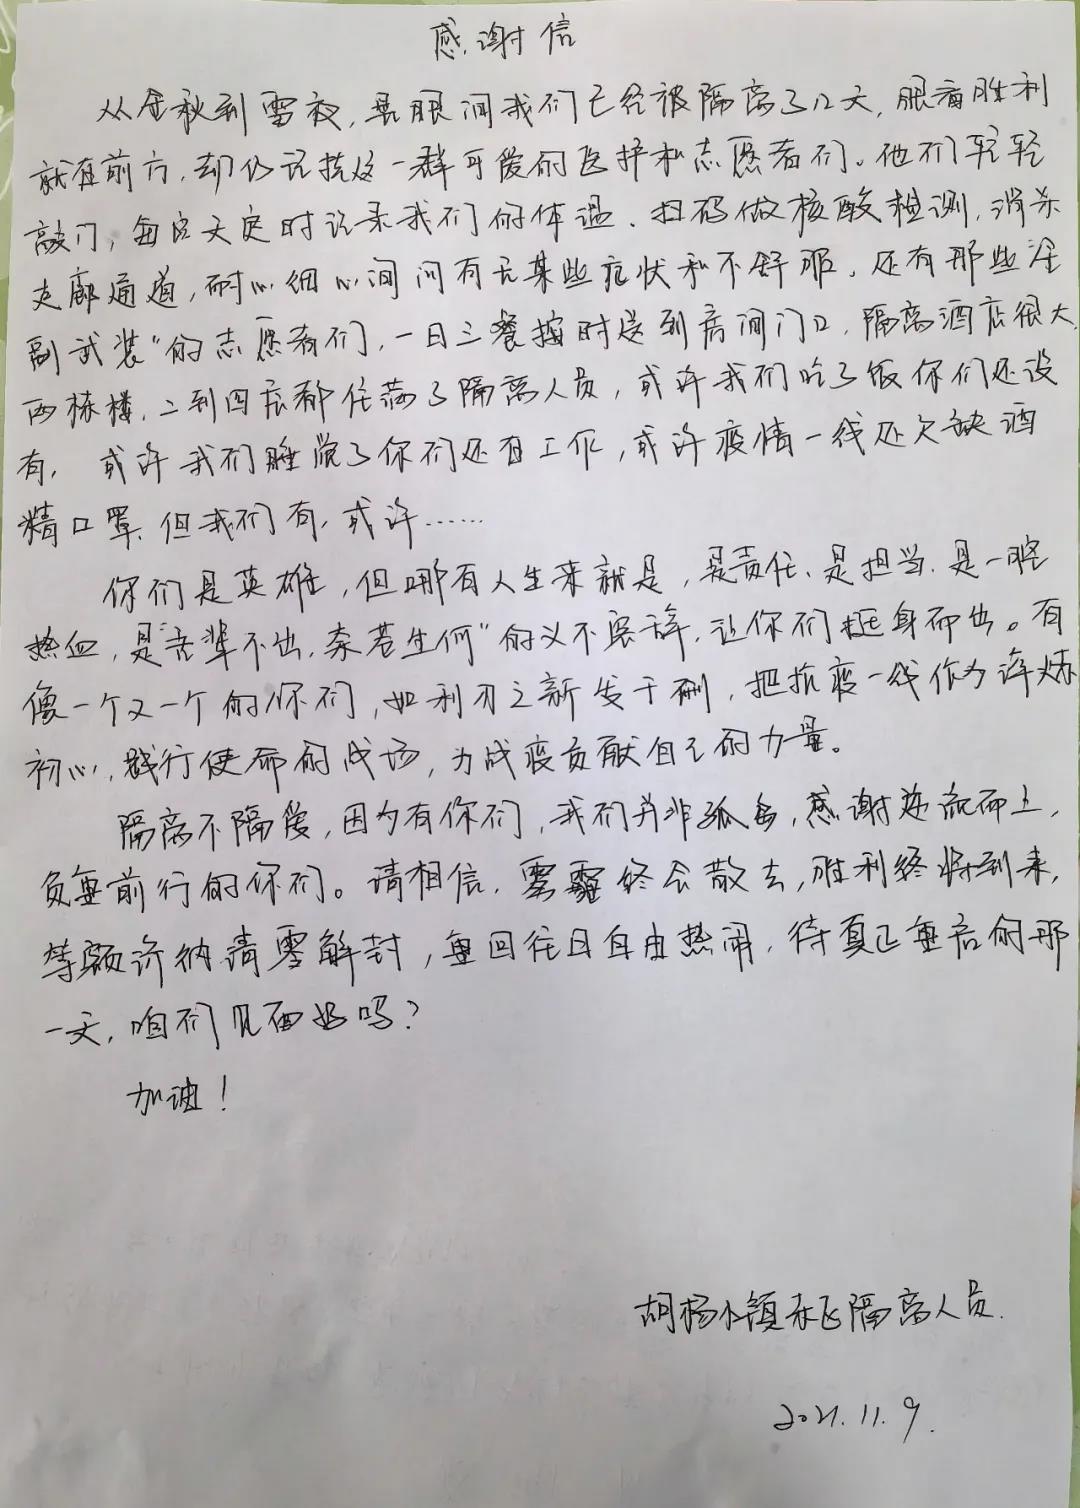 感谢信
从金秋到雪夜,晃眼间我们已经被隔离了12天,眼看胜利
就在前方,却仍记挂这一群可爱的医护和志愿者们。他们轻轻
敲门,每日天定时记录我们的体温、扫码做核酸检测,消杀
走廊通道,耐心细心询问有无某些症状和不舒服,还有那些"全
副武装"的志愿者们,一日三餐按时送到房间门口,隔离酒店很大,
两栋楼,二到四层都住满了隔离人员,或许我们吃了饭你们还没
有,或许我们睡觉了你们还在工作,或许疫情一线还欠缺酒
精口罩、但我们有,或许……
你们是英雄,但哪有人生来就是,是责任、是担当、是一腔
热血,是"吾辈不出,奈苍生何"的义不容辞,让你们挺身而出。有
像一个又一个的你们,如利刃之新发于硎,把抗疫一线作为淬炼
初心,践行使命的战场,为战疫贡献自己的力量。
隔离不隔爱,因为有你们,我们并非孤岛,感谢逆流而上,
负重前行的你们。请相信,雾霾终会散去,胜利终将到来,
等额济纳清零解封,重回往日自由热闹,待真正重启的那
一天,咱们见面好吗?
加油!
胡杨小镇 隔离人员
2021.11.9.